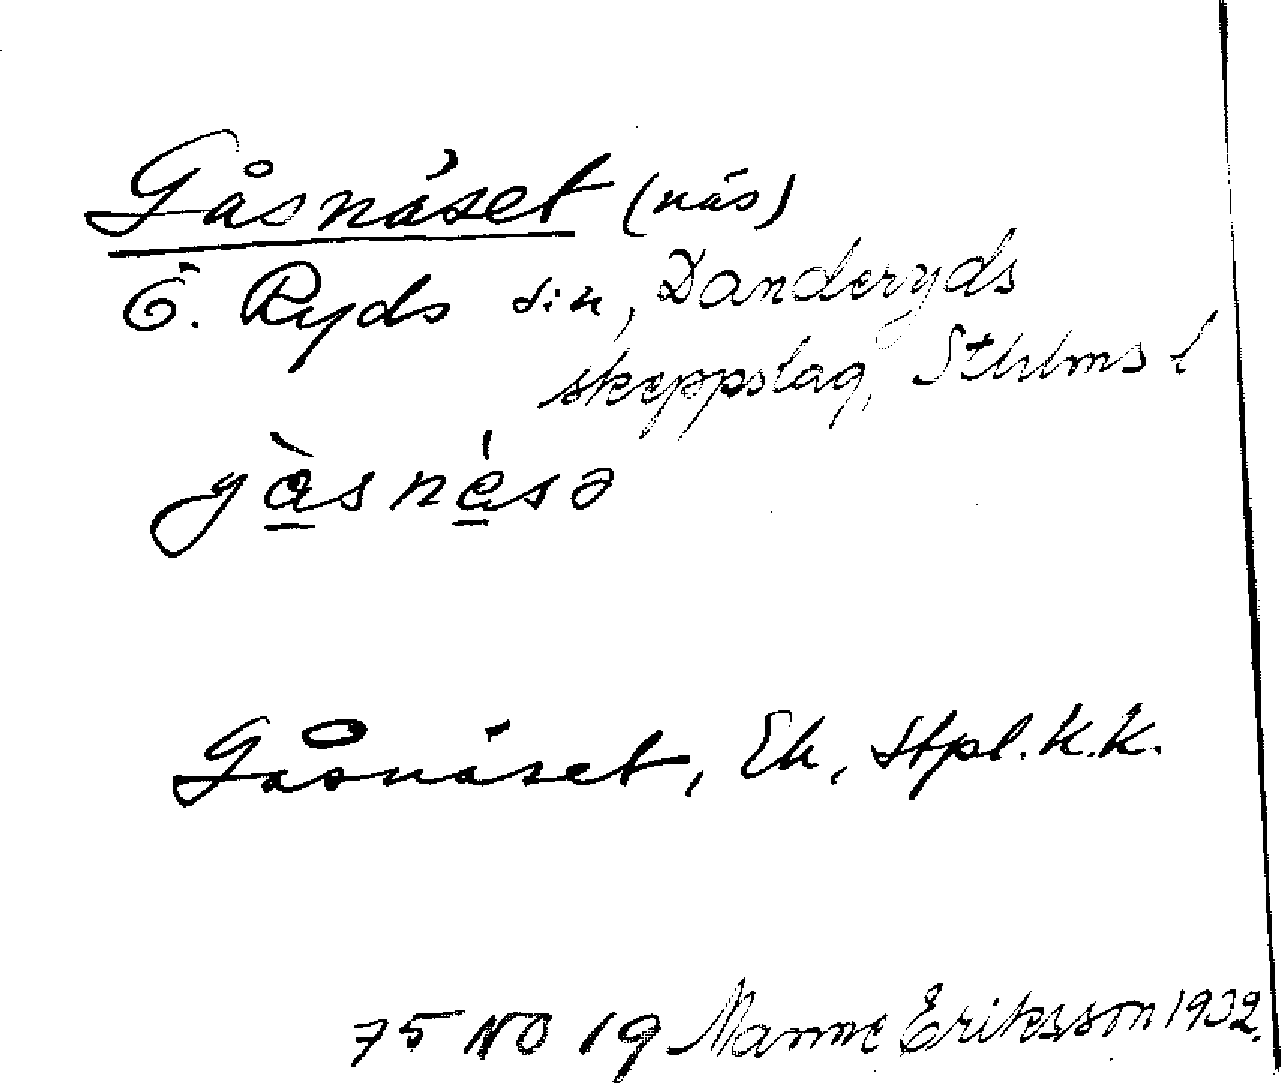 Gåsnäset (näs)
Ö. Ryds sn, Danderyds
skeppslag, Sthlms l
gåsnäsə
Gåsnäset, Ek, Stpl. K.K.
75 NO 19 Manne Eriksson 1932.